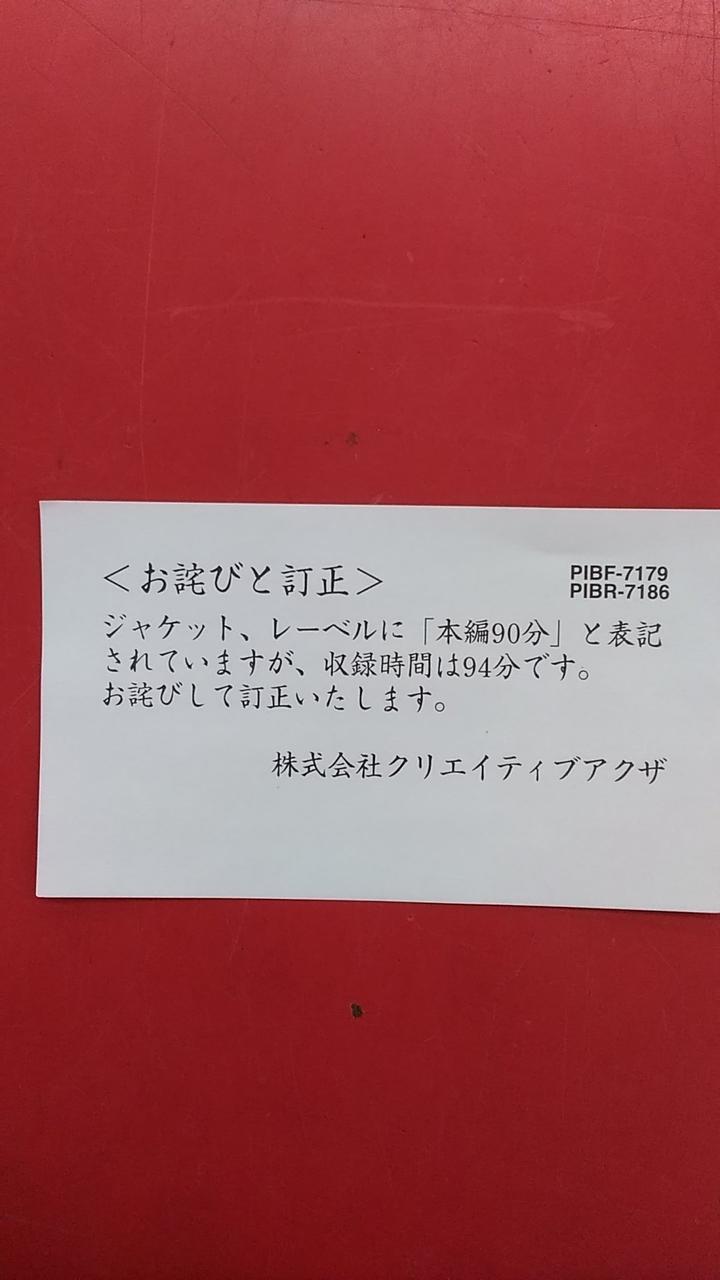 ＜お詫びと訂正＞
PIBF-7179
PIBR-7186
ジャケット、レーベルに「本編90分」と表記
されていますが、収録時間は94分です。
お詫びして訂正いたします。
株式会社クリエイティブアクザ